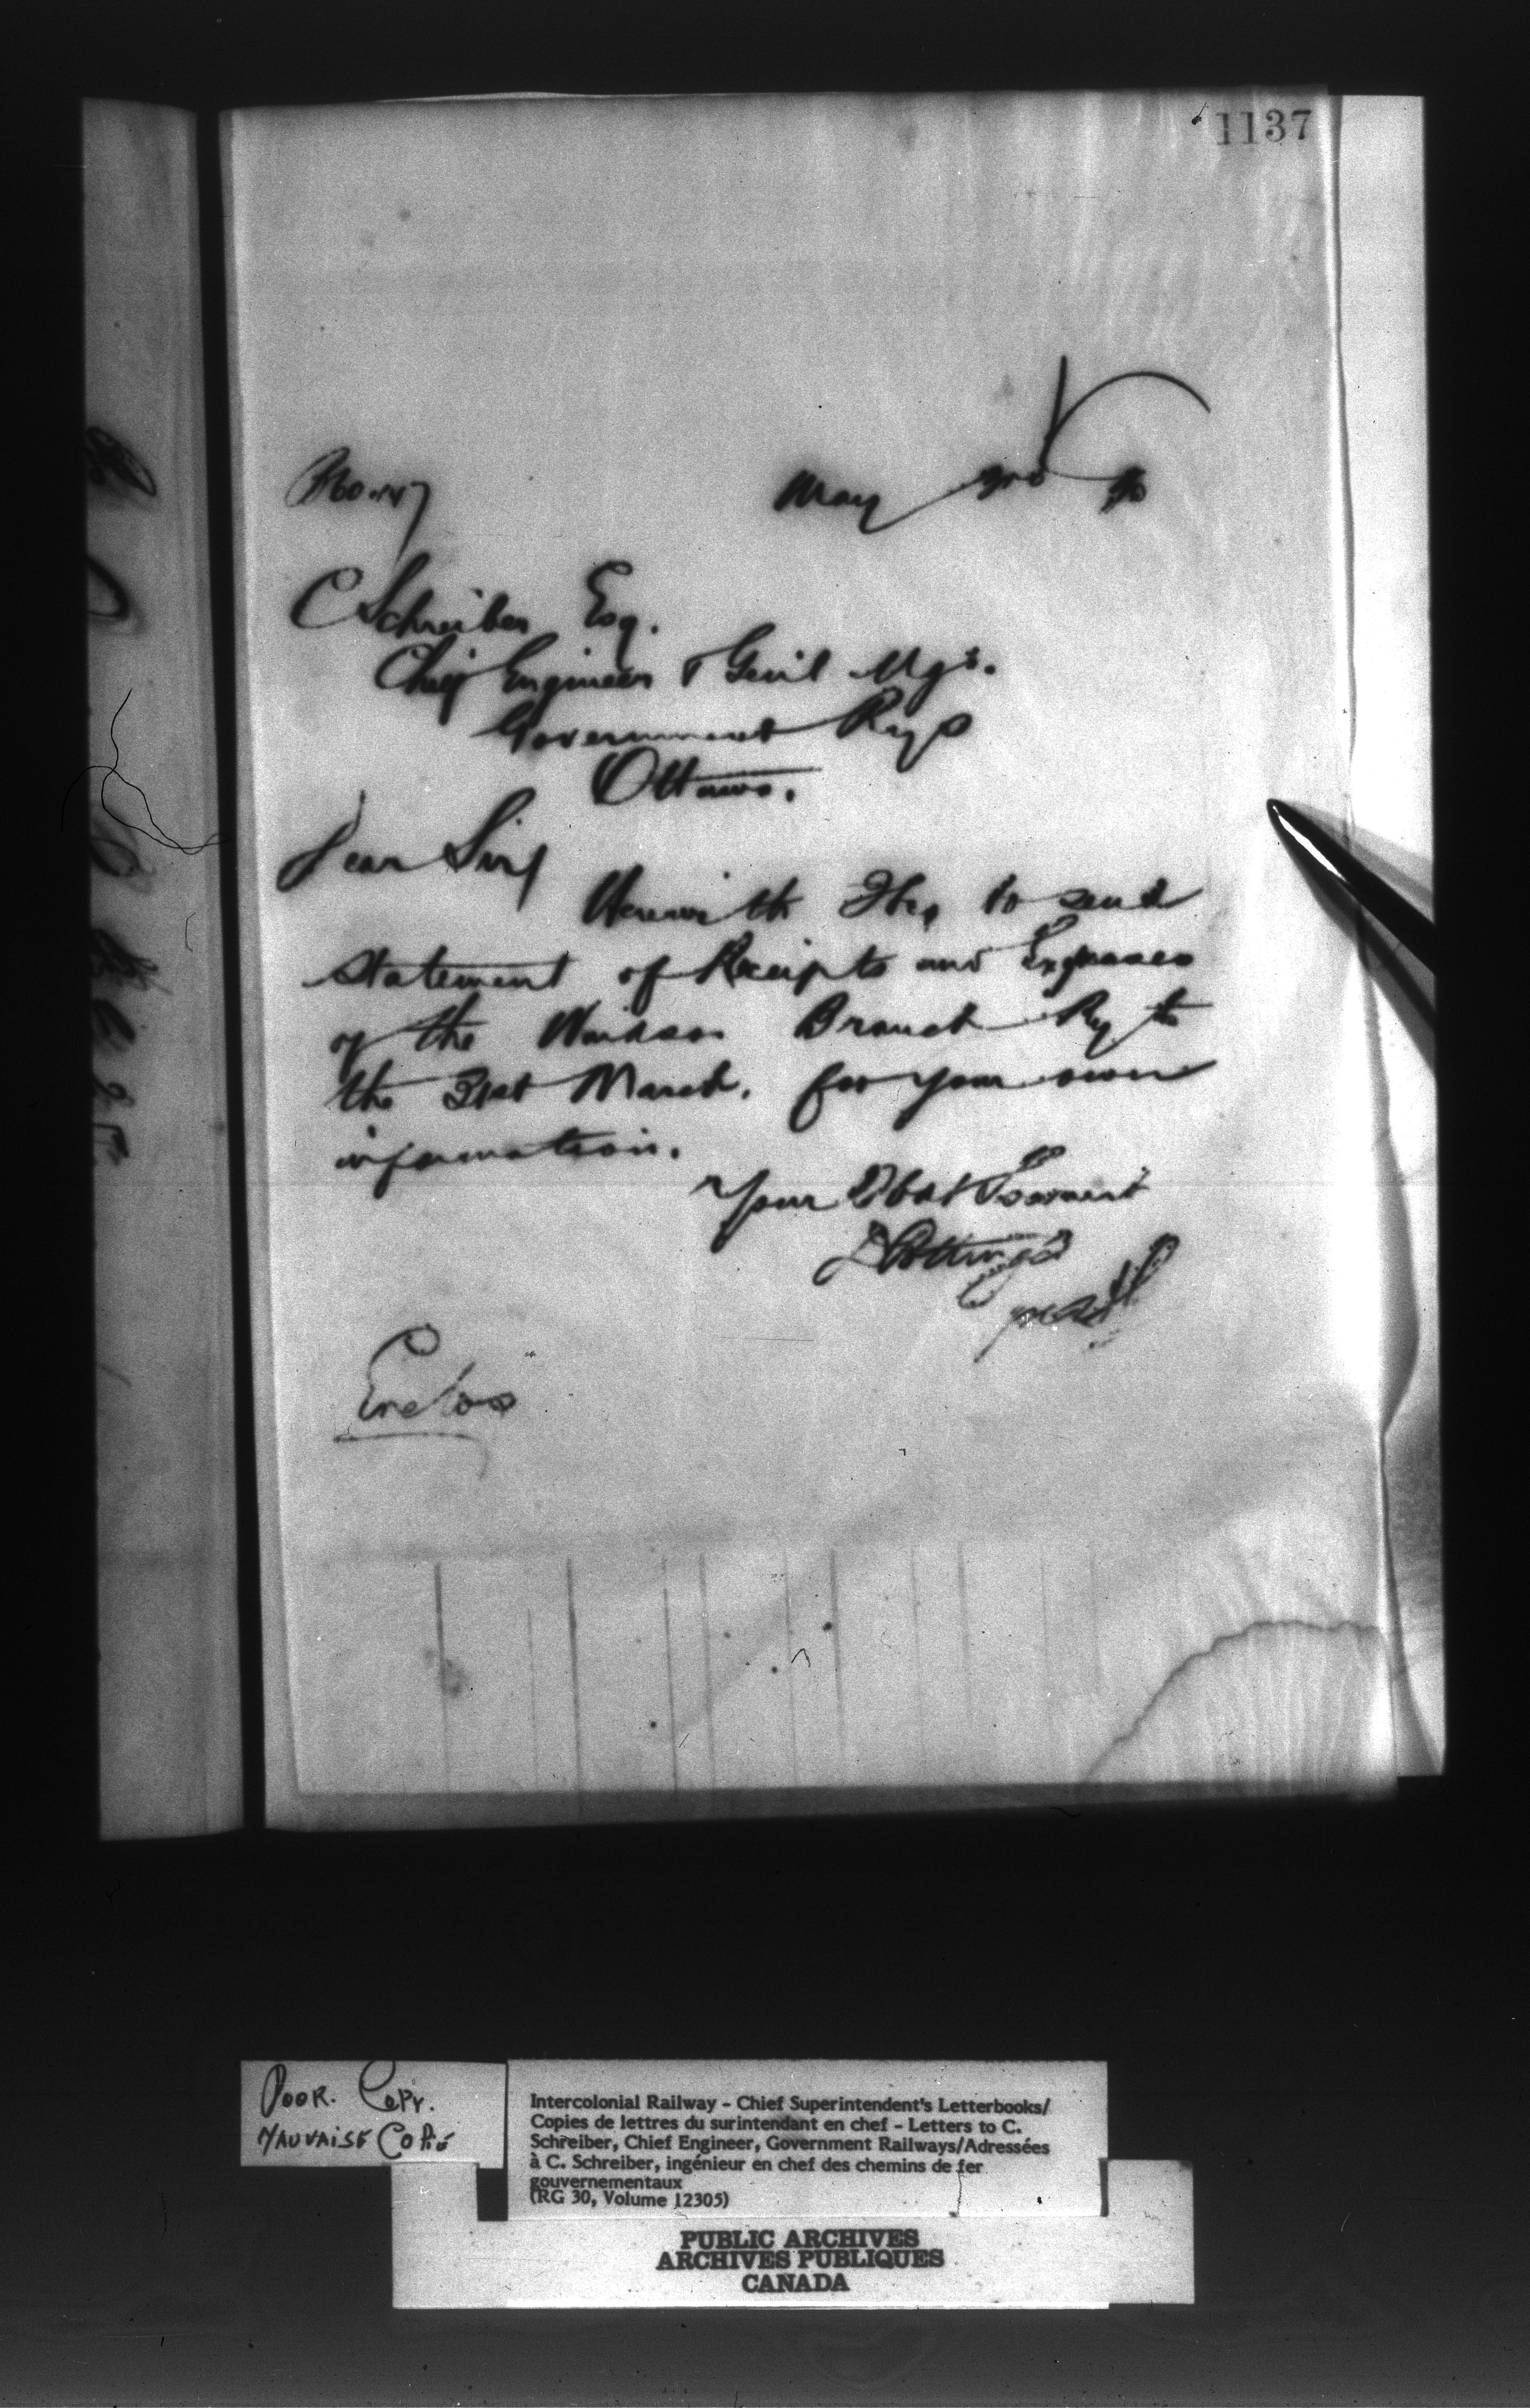 1137
May 3rd
C Schreiber Esq.
Chief Engineer & Genl Mgr.
Government Rys
Ottawa.
Dear Sir
Herewith I beg to send
statement of Receipts and Expenses
of the Windsor Branch Ry to
the 31st March. for your own
information.
Your Obdt Servant
D Pottinger
Enclos
POOR. COPY.
MAUVAISE COPIE
Intercolonial Railway - Chief Superintendent's Letterbooks/
Copies de lettres du surintendant en chef - Letters to C.
Schreiber, Chief Engineer, Government Railways/Adressées
à C. Schreiber, ingénieur en chef des chemins de fer
gouvernementaux
(RG 30, Volume 12305)
PUBLIC ARCHIVES
ARCHIVES PUBLIQUES
CANADA